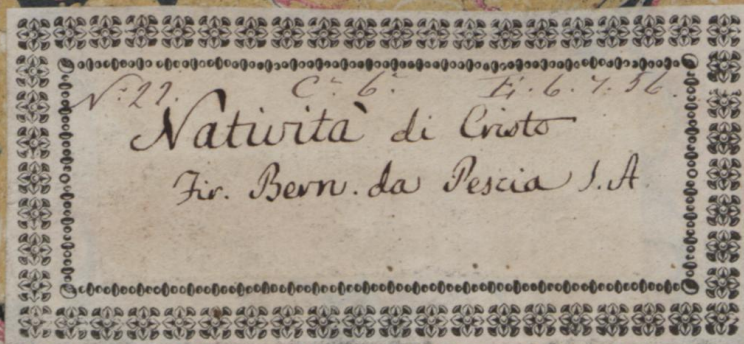 N.° 22. C.a 6.a Fi. 6. 7. 56.
Natività di Cristo
Fir. Bern. da Pescia S. A.